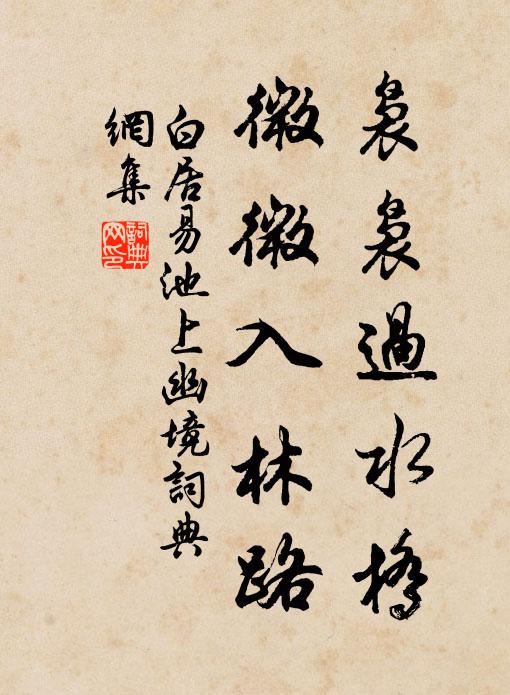 裊裊過水橋
微微入林路
白居易池上幽境詞典
網集
詞典網印